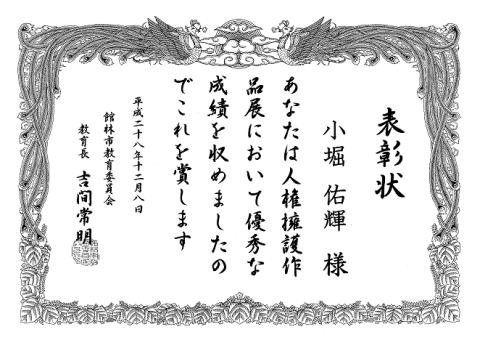 表彰状
小堀 佑輝 様
あなたは人権擁護作
品展において優秀な
成績を収めましたの
でこれを賞します
平成二十八年十二月八日
館林市教育委員会
教育長 吉間常明